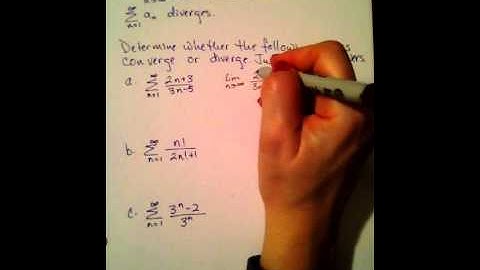 ∑ aₙ diverges.
n=1
Determine whether the
converge or diverge.
a. ∞∑n=1 (2n+3)/(3n-5) lim n→∞
b. ∞∑n=1 n!/(2n!+1)
c. ∞∑n=1 (3ⁿ-2)/3ⁿ